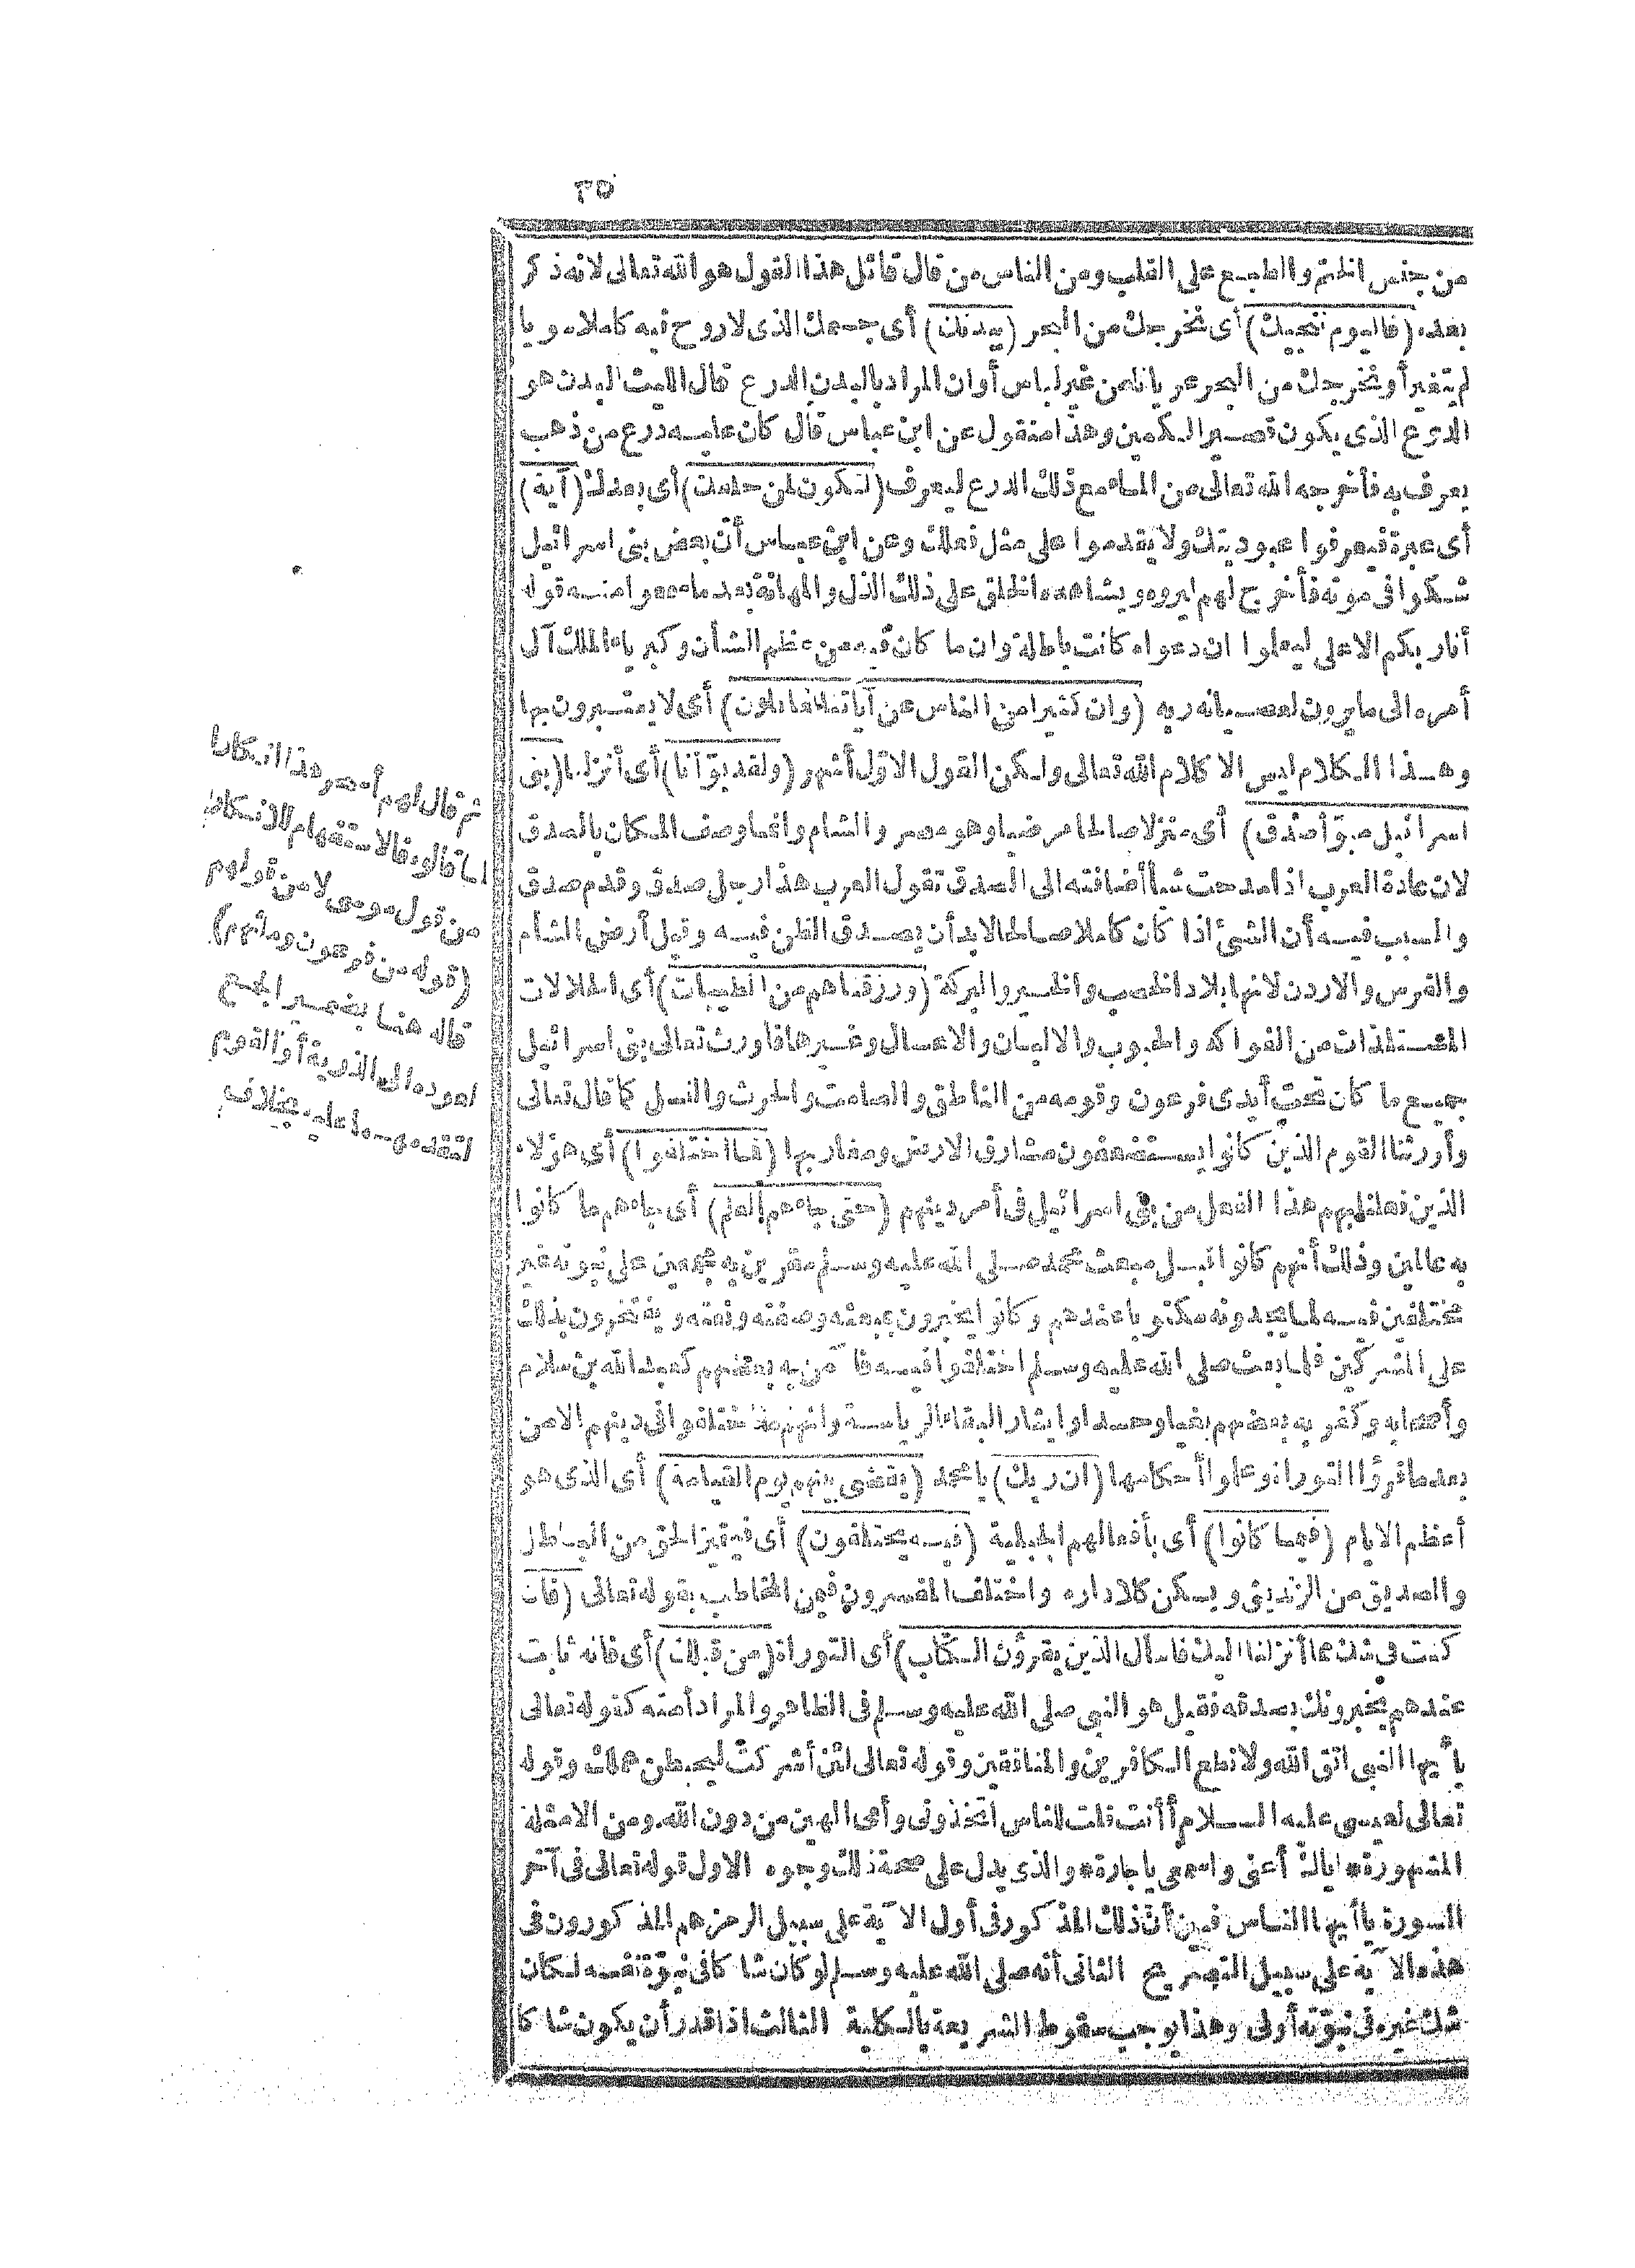 ٣٥
من جنس الختم والطبع على القلب ومن الناس من قال قائل هذا القول هو الله تعالى لانه ذكر
بعده (فاليوم ننجيك) أى نخرجك من البحر (ببدنك) أى جسمك الذى لا روح فيه كاملا سويا
لم يتغير أو نخرجك من البحر عريانا من غير لباس أو ان المراد بالبدن الدرع قال الليث البدن هو
الدرع الذى يكون قصير الكمين وهذا منقول عن ابن عباس قال كان عليه درع من ذهب
يعرف به فأخرجه الله تعالى من الماء مع ذلك الدرع ليعرف (لتكون لمن خلفك) أى بعدك (آية)
أى عبرة فيعرفوا عبوديتك ولا يقدموا على مثل فعلك وعن ابن عباس أن بعض بنى اسرائيل
شكوا فى موته فأخرج لهم ليروه ويشاهده الخلق على ذلك الذل والمهانة بعد ما سمعوا منه قوله
أنا ربكم الاعلى ليعلموا ان دعواه كانت باطلة وان ما كان فيه من عظم الشأن وكبرياء الملك آل
أمره الى ما يرون لعصيانه ربه (وان كثيرا من الناس عن آياتنا لغافلون) أى لا يعتبرون بها
وهذا الكلام ليس الا كلام الله تعالى ولكن القول الاوّل أشهر (ولقد بوّأنا) أى أنزلنا (بنى
اسرائيل مبوّأ صدق) أى منزلا صالحا مرضيا وهو مصر والشام وانما وصف المكان بالصدق
لان عادة العرب اذا مدحت شيأ أضافته الى الصدق تقول العرب هذا رجل صدق وقدم صدق
والسبب فيه أن الشئ اذا كان كاملا صالحا لابد أن يصدق الظن فيه وقيل أرض الشام
والقدس والاردن لانها بلاد الخصب والخير والبركة (ورزقناهم من الطيبات) أى الحلالات
المستلذات من الفواكه والحبوب والالبان والاعسال وغيرها فأورث تعالى بنى اسرائيل
جميع ما كان تحت أيدى فرعون وقومه من الناطق والصامت والحرث والنسل كما قال تعالى
وأورثنا القوم الذين كانوا يستضعفون مشارق الارض ومغاربها (فما اختلفوا) أى هؤلاء
الذين فعلنا بهم هذا الفعل من بنى اسرائيل فى أمر دينهم (حتى جاءهم العلم) أى جاءهم ما كانوا
به عالمين وذلك أنهم كانوا قبل مبعث محمد صلى الله عليه وسلم مقرين به مجمعين على نبوته غير
مختلفين فيه لما يجدونه مكتوبا عندهم وكانوا يخبرون بمبعثه وصفته ونعته ويفتخرون بذلك
على المشركين فلما بعث صلى الله عليه وسلم اختلفوا فيه فآمن به بعضهم كعبد الله بن سلام
وأصحابه وكفر به بعضهم بغيا وحسدا وايثار البقاء الرياسة وانهم ما اختلفوا فى دينهم الا من
بعد ما قرؤا التوراة وعلموا أحكامها (ان ربك) يا محمد (يقضى بينهم يوم القيامة) أى الذى هو
أعظم الايام (فيما كانوا) أى بأفعالهم الجبلية (فيه يختلفون) أى فيتميز الحق من الباطل
والصديق من الزنديق ويسكن كلا داره واختلف المفسرون فيمن المخاطب بقوله تعالى (فان
كنت فى شك مما أنزلنا اليك فاسأل الذين يقرؤن الكتاب) أى التوراة (من قبلك) أى فانه ثابت
عندهم يخبرونك بصدقه فقيل هو النبى صلى الله عليه وسلم فى الظاهر والمراد أمته كقوله تعالى
يا أيها النبى اتق الله ولا تطع الكافرين والمنافقين وقوله تعالى لئن أشركت ليحبطن عملك وقوله
تعالى لعيسى عليه السلام أأنت قلت للناس اتخذونى وأمى الهين من دون الله. ومن الامثلة
المشهورة * اياك أعنى واسمعى يا جارة * والذى يدل على صحة ذلك وجوه الاول قوله تعالى فى آخر
السورة يا أيها الناس فبين أنّ ذلك المذكور فى أول الآية على سبيل الرمز هم المذكورون فى
هذه الآية على سبيل التصريح الثانى أنه صلى الله عليه وسلم لو كان شاكا فى نبوّة نفسه لكان
شك غيره فى نبوّته أولى وهذا يوجب سقوط الشريعة بالكلية الثالث اذا قدر أن يكون شاكا
ثم قال لهم أسحر هذا انكارا
لما قالوه فالاستفهام للانكار
من قول موسى لا من قولهم
(قوله من فرعون وملئهم)
قاله هنا بضمير الجمع
لعوده الى الذرية أو القوم
لتقدمهما عليه بخلاف